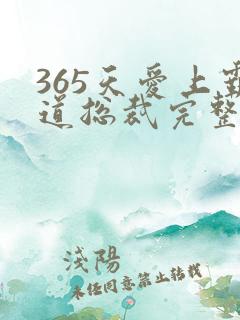 365天爱上霸
道总裁完整
浅陽
未任同意禁止转载